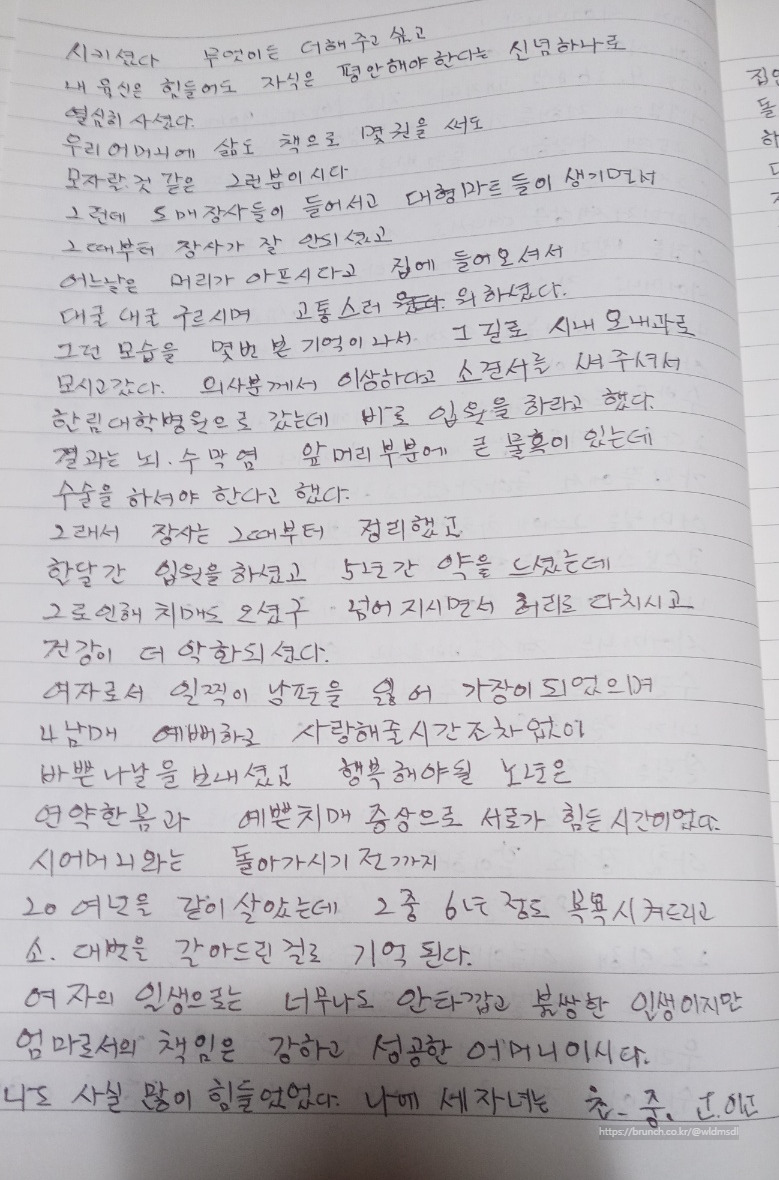 시키셨다 무엇이든 더해 주고 싶고
내 육신은 힘들어도 자식은 평안해야 한다는 신념하나로
열심히 사셨다.
우리 어머니에 삶도 책으로 몇권을 써도
모자랄 것 같은 그런분이시다
그런데 도매장사들이 들어서고 대형마트들이 생기면서
그때부터 장사가 잘 안되셨고
어느날은 머리가 아프시다고 집에 들어오셔서
대굴대굴 구르시며 고통스러 워하셨다.
그런 모습을 몇번 본 기억이 나서 그 길로 시내 오내과로
모시고갔다. 의사분께서 이상하다고 소견서를 써 주셔서
한림대학병원으로 갔는데 바로 입원을 하라고 했다.
결과는 뇌.수막염 앞머리부분에 큰 물혹이 있는데
수술을 하셔야 한다고 했다.
그래서 장사는 그때부터 정리했고
한달간 입원을 하셨고 5년간 약을 드셨는데
그로인해 치매도 오셨구 넘어지시면서 허리도 다치시고
건강이 더 악화되셨다.
여자로서 일찍이 남편을 잃어 가장이 되었으며
4남매 예뻐하고 사랑해줄시간조차없이
바쁜나날을 보내셨고 행복해야될 노년은
연약한몸과 예쁜치매 증상으로 서로가 힘든 시간이었다.
시어머니와는 돌아가시기 전까지
20여년을 같이살았는데 그중 6년 정도 목욕시켜드리고
소.대변을 갈아드린걸로 기억된다.
여자의 인생으로는 너무나도 안타깝고 불쌍한 인생이지만
엄마로서의 책임은 강하고 성공한 어머니이시다.
나도 사실 많이 힘들었었다. 나에 세자녀는 초.중.고.이고
https://brunch.co.kr/@wldmsdl
집안
돌
하